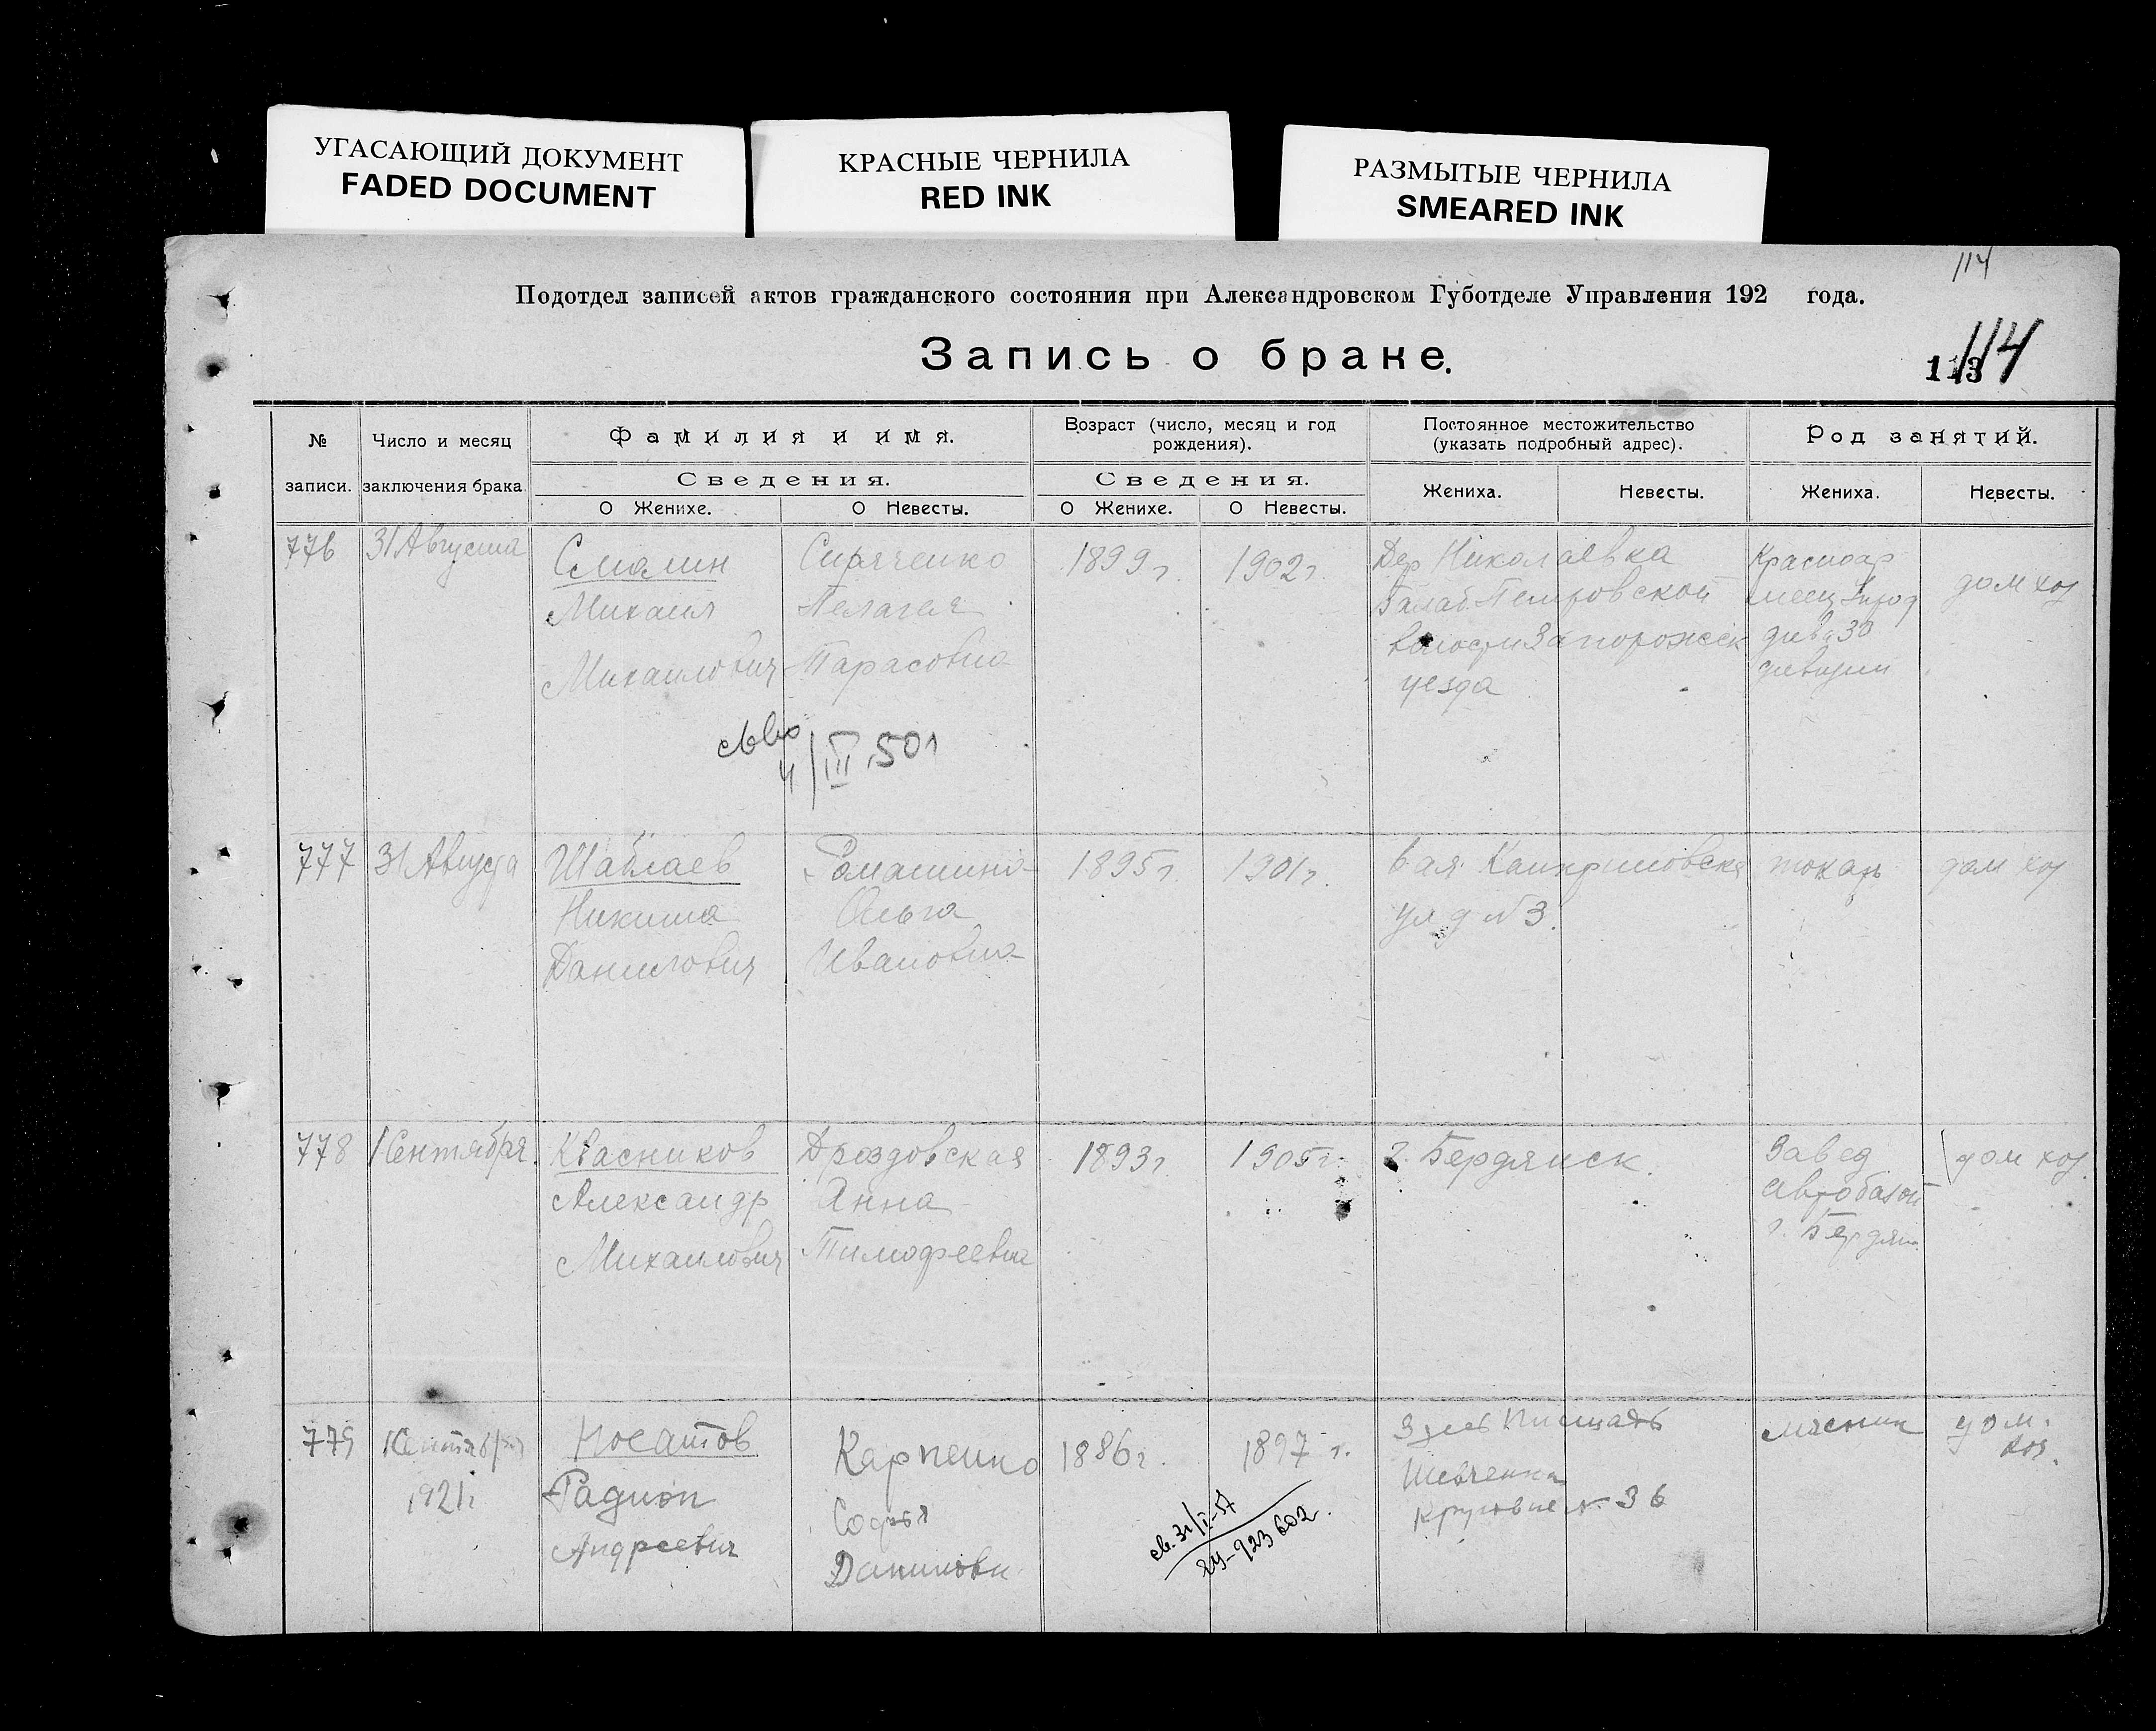 УГАСАЮЩИЙ ДОКУМЕНТ
FADED DOCUMENT
КРАСНЫЕ ЧЕРНИЛА
RED INK
РАЗМЫТЫЕ ЧЕРНИЛА
SMEARED INK
114
Подотдел записей актов гражданского состояния при Александровском Губотделе Управления 192 года.
Запись о браке.
114
№ записи.
Число и месяц заключения брака.
Фамилия и имя.
Сведения.
О Женихе.
О Невесты.
Возраст (число, месяц и год рождения).
Сведения.
О Женихе.
О Невесты.
Постоянное местожительство (указать подробный адрес).
Жениха.
Невесты.
Род занятий.
Жениха.
Невесты.
776
31 Августа
Смалин
Михаил
Михаилович
Пелагея
Тарасовна
1899 г.
1902 г.
Дер Николаевка
Балаб. Петровской
волости Запорожск
уезда
дом хоз
4/III 501
777
31 Августа
Шаблаев
Никита
Данилович
Ольга
Ивановна
1895 г.
1901 г.
ул д № 3.
токарь
дом хоз
778
1 Сентября.
Квасников
Александр
Михаилович
Дроздовская
Анна
Тимофеевна
1893 г
1905 г.
г. Бердянск.
Завед
автобазой
г. Бердян.
дом хоз.
779
1 Сентября
1921 г
Носатов
Радион
Андреевич
Карпенко
Софья
Даниловн
1886 г.
1897 г.
Шевченка
№ 36
мясник
дом.
хоз.